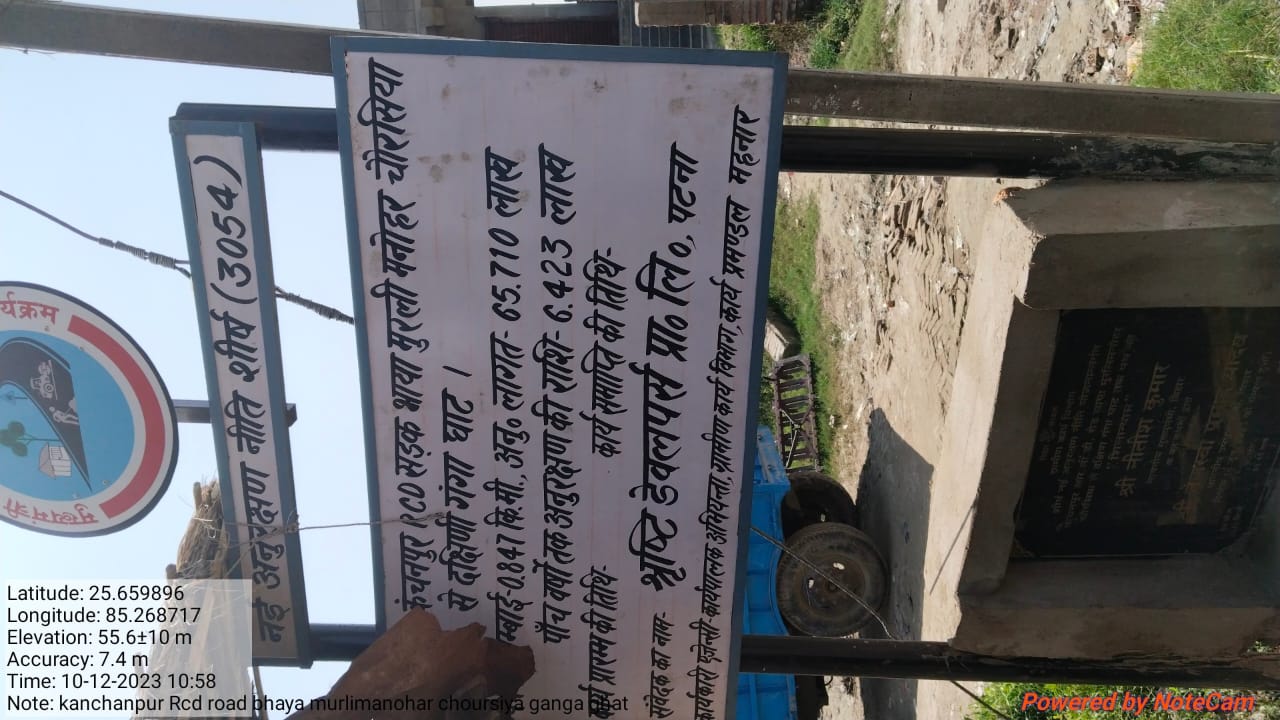 र्यक्रम
मुख्यमंत्री
नई अनुरक्षण नीति शीर्ष (3054)
कंचनपुर RCD सड़क भाया मुरली मनोहर चौरसिया
से दक्षिणी गंगा घाट ।
म्बाई-0.847 कि.मी., अनु० लागत- 65.710 लाख
पाँच वर्षो तक अनुरक्षण की राशि- 6.423 लाख
कार्य प्रारम्भ की तिथि- कार्य समाप्ति की तिथि-
संवेदक का नाम- श्रृष्टि डेवलपर्स प्रा० लि०, पटना
कार्यकारी एजेन्सी- कार्यपालक अभियन्ता, ग्रामीण कार्य विभाग, कार्य प्रमण्डल महनार
श्री नीतीश कुमार
Latitude: 25.659896
Longitude: 85.268717
Elevation: 55.6±10 m
Accuracy: 7.4 m
Time: 10-12-2023 10:58
Note: kanchanpur Rcd road bhaya murlimanohar choursiya ganga ghat
Powered by NoteCam